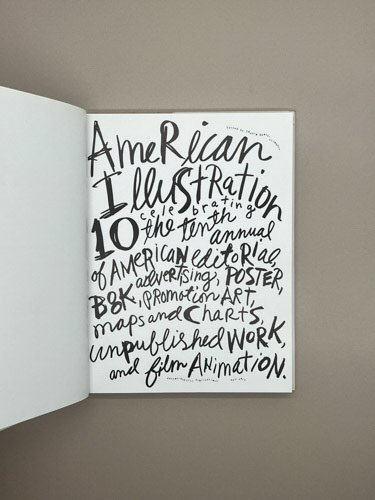 AmeRican
IlluStRation
celebrating
10 the tenth
annual
of AMERICAN editoRIal,
advertising, POSTER,
BOOK, pRomotion ART,
maps and CHaRTS,
unpublished WORK,
and film ANiMaTION.